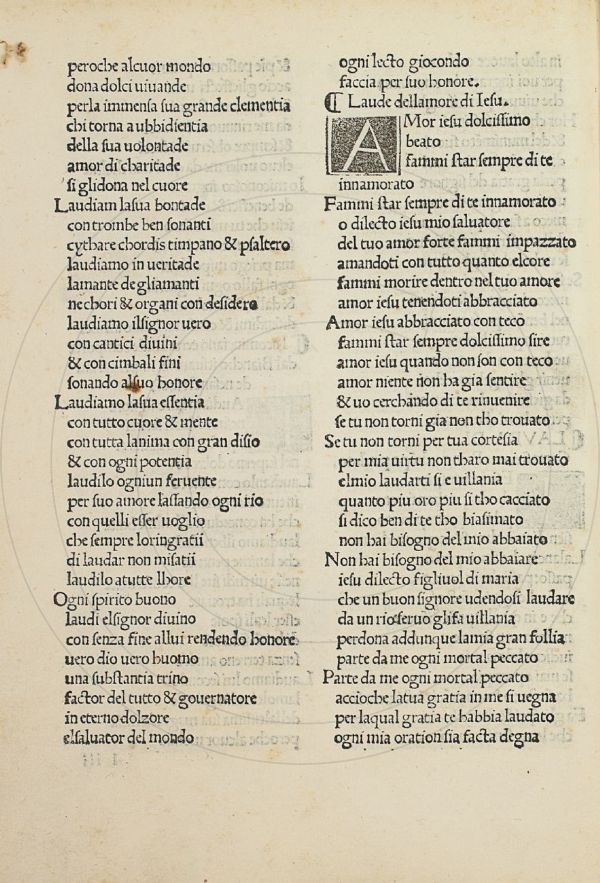 peroche alcuor mondo
dona dolci uiuande
perla immensa sua grande clementia
chi torna a ubbidientia
della sua uolontade
amor di charitade
si glidona nel cuore
Laudiam lasua bontade
con trombe ben sonanti
cythare chordis timpano & psaltero
laudiamo in ueritade
lamante de gliamanti
ne chori & organi con desidero
laudiamo ilsignor uero
con cantici diuini
& con cimbali fini
sonando alsuo honore
Laudiamo lasua essentia
con tutto cuore & mente
con tutta lanima con gran disio
& con ogni potentia
laudilo ogniun feruente
per suo amore lassando ogni rio
con quelli esser uoglio
che sempre loringratii
di laudar non misatii
laudilo atutte lhore
Ogni spirito buono
laudi elsignor diuino
con senza fine allui rendendo honore
uero dio uero buomo
una substantia trino
factor del tutto & gouernatore
in eterno dolzore
elsaluator del mondo
ogni lecto giocondo
faccia per suo honore.
¶ Laude dellamore di Iesu.
AMor iesu dolcissimo
beato
fammi star sempre di te
innamorato
Fammi star sempre di te innamorato
o dilecto iesu mio saluatore
del tuo amor forte fammi impazzato
amandoti con tutto quanto elcore
fammi morire dentro nel tuo amore
amor iesu tenendoti abbracciato
Amor iesu abbracciato con teco
fammi star sempre dolcissimo sire
amor iesu quando non son con teco
amor niente non ha gia sentire
& uo cerchando di te rinuenire
se tu non torni gia non tho trouato
Se tu non torni per tua cortesia
per mia uirtu non tharo mai trouato
elmio laudarti si e uillania
quanto piu oro piu si tho cacciato
si dico ben di te tho biasimato
non hai bisogno del mio abbaiato
Non hai bisogno del mio abbaiare
iesu dilecto figliuol di maria
che un buon signore udendosi laudare
da un rio seruo glisa uillania
perdona addunque lamia gran follia
parte da me ogni mortal peccato
Parte da me ogni mortal peccato
accioche latua gratia in me si uegna
per laqual gratia te habbia laudato
ogni mia oration sia facta degna